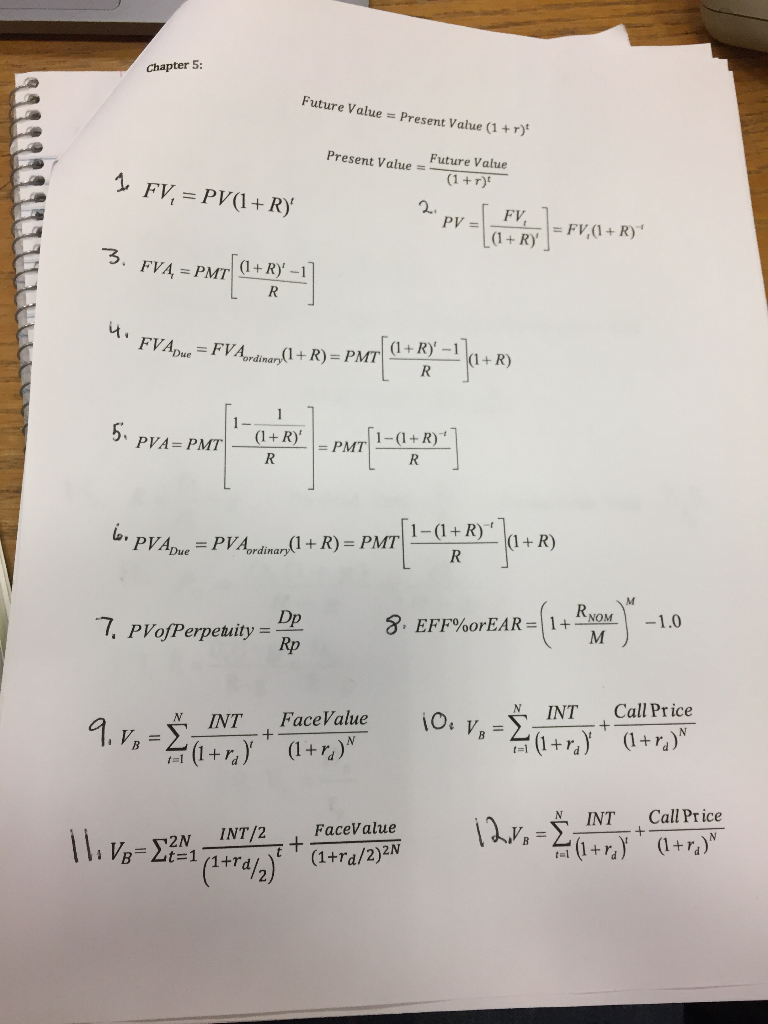 Chapter 5:
Future Value = Present Value (1 + r)^t
Present Value = Future Value / (1 + r)^t
1. FV_t = PV(1 + R)^t
2. PV = [FV_t / (1 + R)^t] = FV_t(1 + R)^-t
3. FVA_t = PMT[((1 + R)^t − 1) / R]
4. FVA_Due = FVA_ordinary(1 + R) = PMT[((1 + R)^t − 1) / R](1 + R)
5. PVA = PMT[(1 − 1 / (1 + R)^t) / R] = PMT[(1 − (1 + R)^-t) / R]
6. PVA_Due = PVA_ordinary(1 + R) = PMT[(1 − (1 + R)^-t) / R](1 + R)
7. PVofPerpetuity = Dp / Rp
8. EFF%orEAR = (1 + R_NOM / M)^M − 1.0
9. V_B = Σ_{t=1}^{N} INT / (1 + r_d)^t + FaceValue / (1 + r_d)^N
10. V_B = Σ_{t=1}^{N} INT / (1 + r_d)^t + Call Price / (1 + r_d)^N
11. V_B = Σ_{t=1}^{2N} INT/2 / (1+r_d/2)^t + FaceValue / (1+r_d/2)^2N
12. V_B = Σ_{t=1}^{N} INT / (1 + r_d)^t + Call Price / (1 + r_d)^N